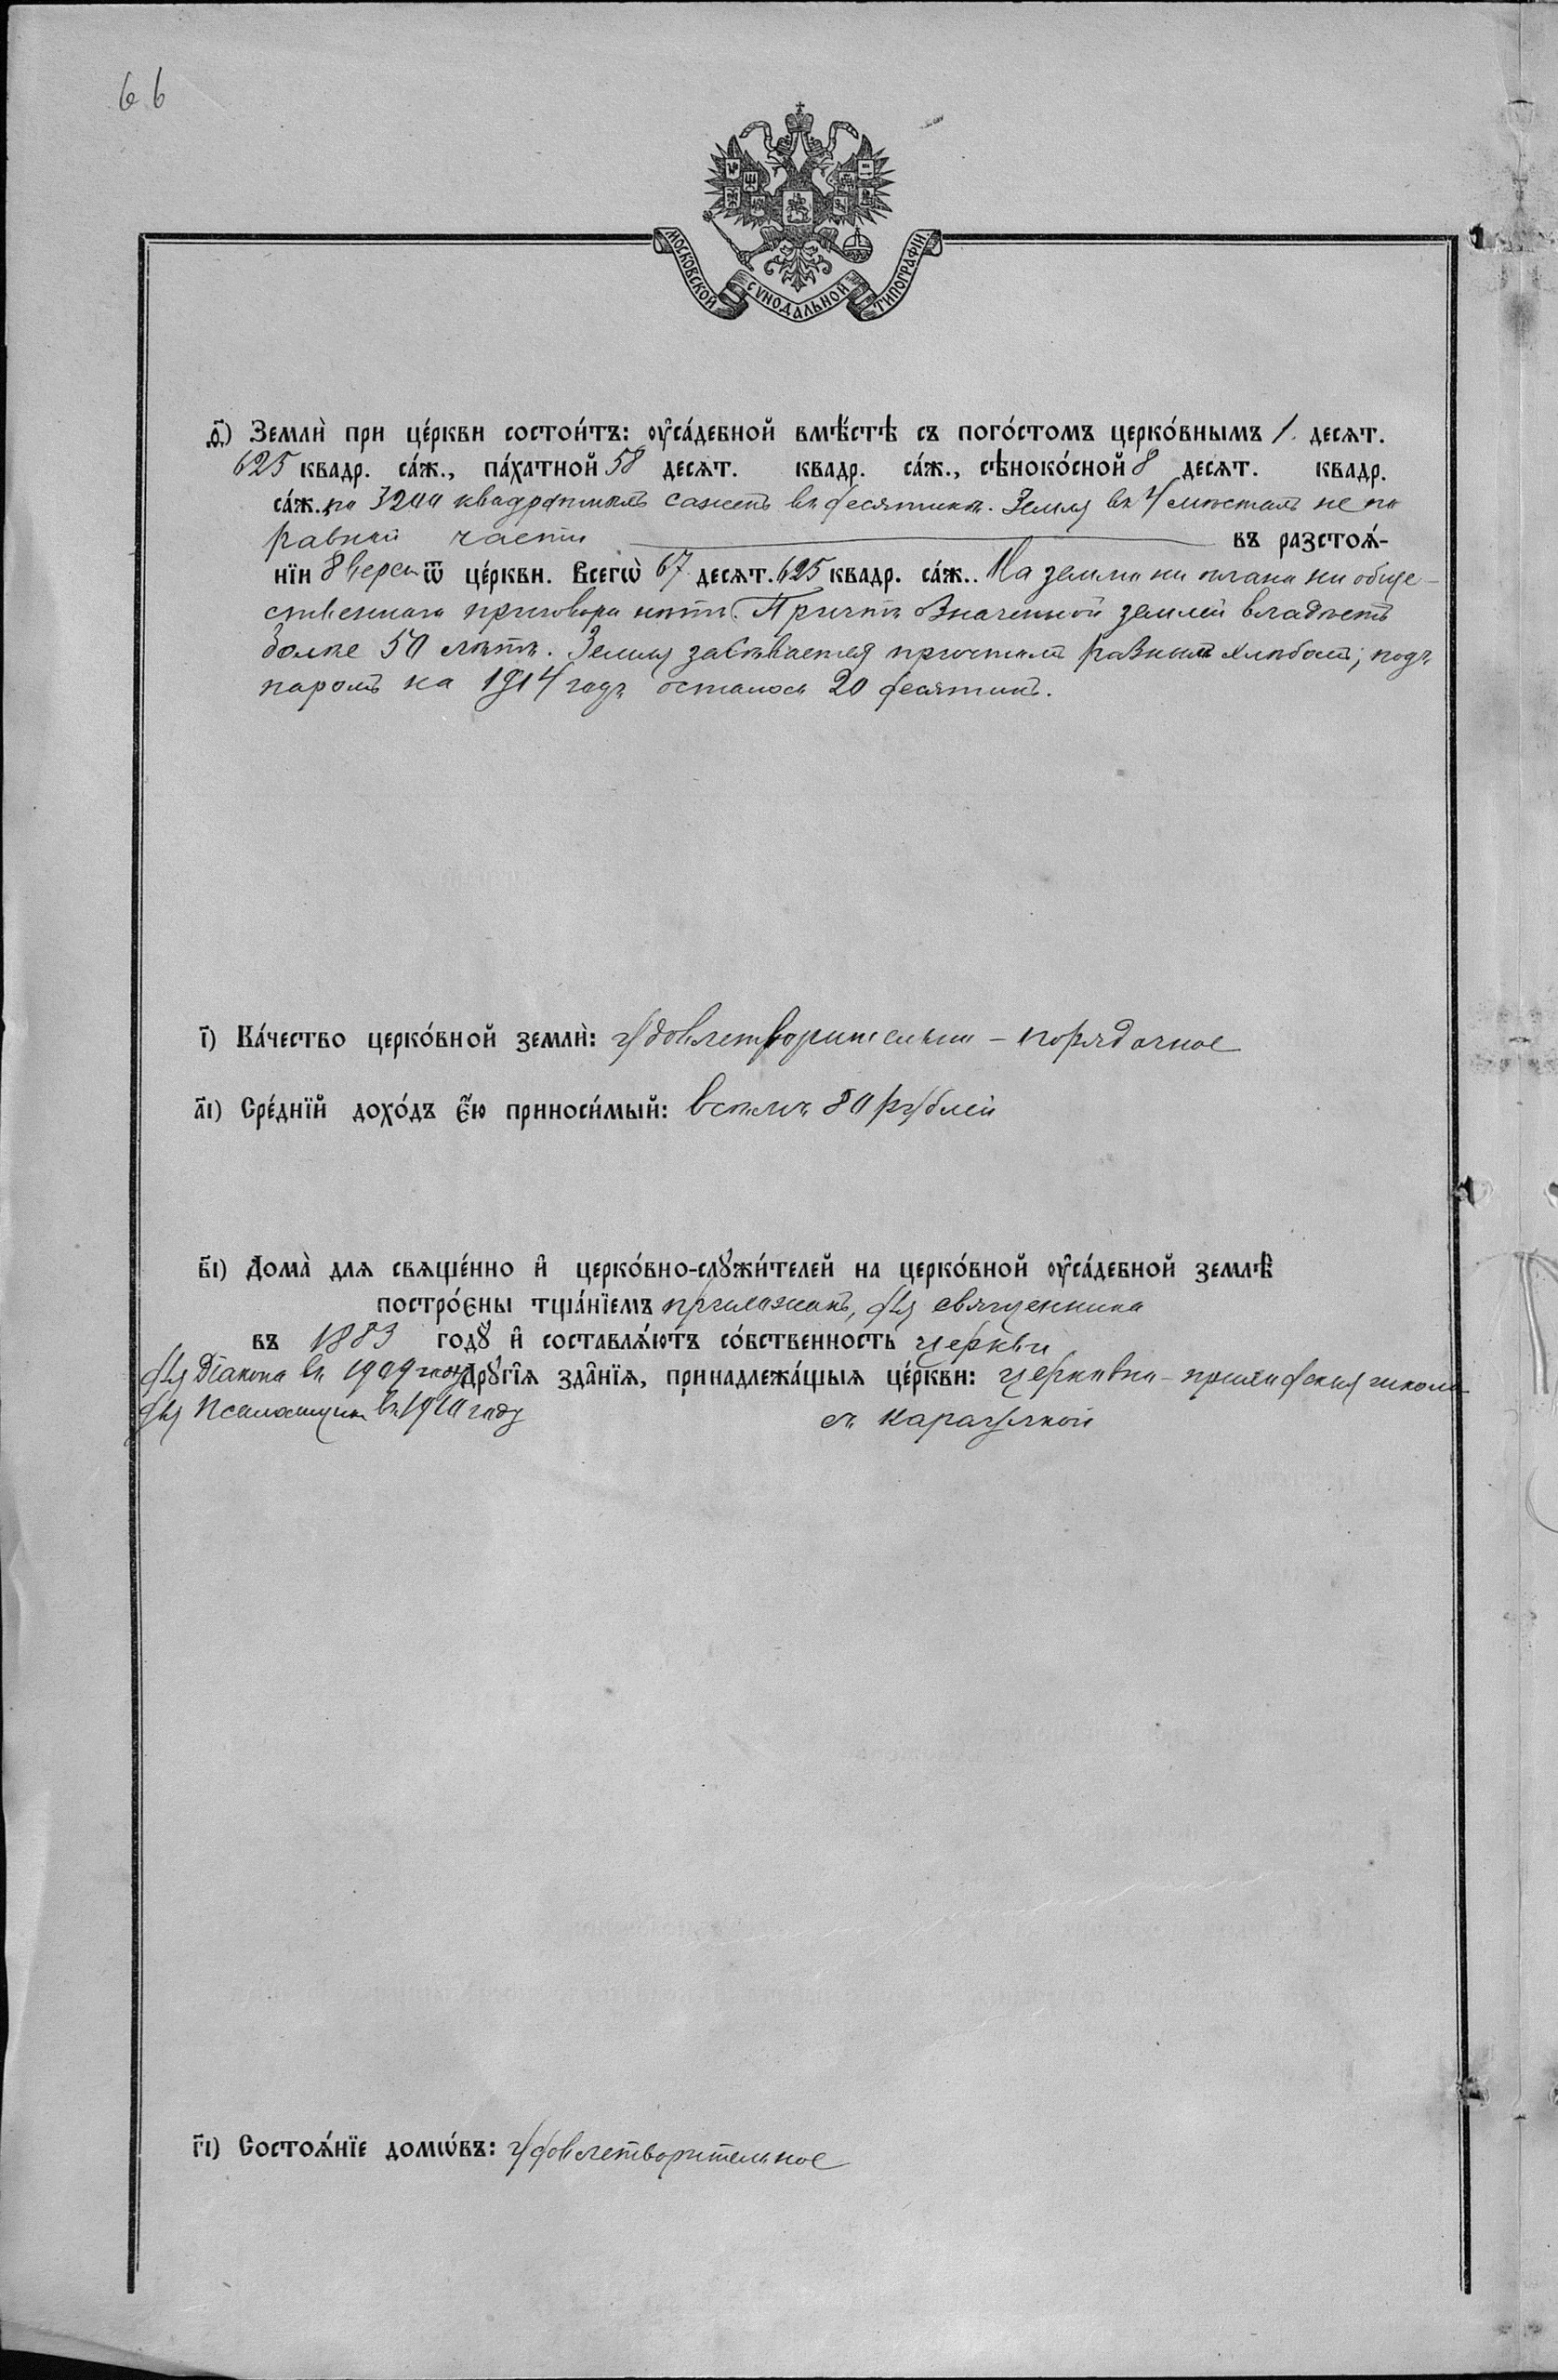 66
МОСКОВСКОЙ СѴНОДАЛЬНОЙ ТИПОГРАФІИ.
ѳ҃) Землѝ при це́ркви состои́тъ: ᲂу҆са́дебной вмѣ́стѣ съ пого́стомъ церко́внымъ 1. десѧт.
625 квадр. са́ж., па́хатной 58 десѧт. квадр. са́ж., сѣноко́сной 8 десѧт. квадр.
са́ж. по 3200 квадратныхъ сажень въ десятинѣ. Земля въ 4 мѣстахъ не по
равной части въ разстоѧ́-
нїи 8 верстъ ѿ це́ркви. Всегѡ̀ 67 десѧт. 625 квадр. са́ж.. На землю ни плана ни обще-
ственнаго приговора нѣтъ. Причтъ означенной землей владѣетъ
более 50 лѣтъ. Земля засѣвается причтомъ разнымъ хлѣбомъ; подъ
паромъ на 1914 годъ осталось 20 десятинъ.
і҃) Ка́чество церко́вной землѝ: удовлетворительно - порядочное
а҃і) Сре́днїй дохо́дъ є҆́ю приноси́мый: всѣмъ 80 рублей
в҃і) Дома̀ для свѧще́нно и҆ церко́вно-слꙋжи́телей на церко́вной ᲂу҆са́дебной землѣ̀
постро́єны тща́нїемъ прихожанъ, для священника
въ 1883 годꙋ̀ и҆ составлѧ́ютъ со́бственность церкви
для Діакона въ 1909 году Дрꙋгі̑ѧ зда̑нїѧ, принадлежа́щыѧ це́ркви: церковно-приходская школа
для Псаломщика въ 1910 году съ караулкой
г҃і) Состоѧ́нїе домѡ́въ: удовлетворительное